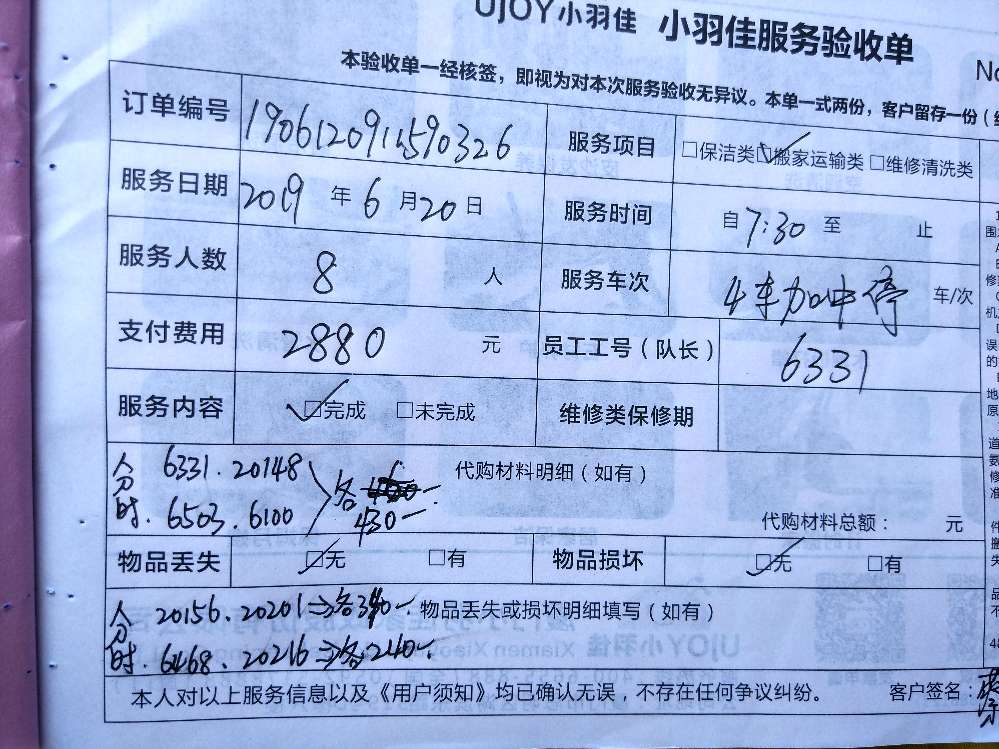 UJOY小羽佳 小羽佳服务验收单
No
本验收单一经核签，即视为对本次服务验收无异议。本单一式两份，客户留存一份（
订单编号 服务项目 □保洁类 ☑搬家运输类 □维修清洗类
服务日期 2019 年 6 月 20 日 服务时间 自 7:30 至 止
服务人数 8 人 服务车次 4车加中停 车/次
支付费用 2880 元 员工工号（队长） 6331
服务内容 ☑完成 □未完成 维修类保修期
6331.20148 各 代购材料明细（如有）
时. 6503.6100 430一
代购材料总额： 元
物品丢失 ☑无 □有 物品损坏 ☑无 □有
20156.20201⇒各 物品丢失或损坏明细填写（如有）
时. 6468.20216⇒各240一.
本人对以上服务信息以及《用户须知》均已确认无误，不存在任何争议纠纷。 客户签名：